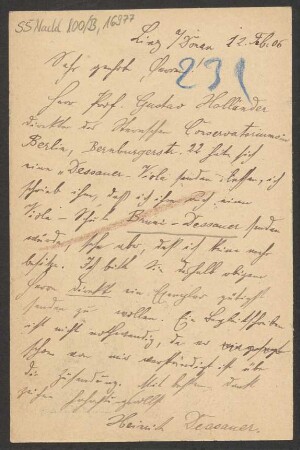 SS Nachl 100/B, 16977
Linz a/Donau 12. Feb. 06
231
Sehr geehrter Herr
Herr Prof. Gustav Holländer
Direktor des Sternschen Conservatoriums in
Berlin, Bernburgerstr. 22 hatte sich
eine "Dessauer-Viola senden lassen, ich
schrieb ihm, daß ich ihm auch eine
Viola-Schule Bruni-Dessauer senden
würde, sehe aber, daß ich keine mehr
besitze. Ich bitte Sie deshalb obigem
Herrn direkt ein Exemplar gütigst
senden zu wollen. Ein Begleitschreiben
ist nicht nothwendig, da er
schon von mir verständigt ist über
die Zusendung. Mit bestem Dank
zeichne hochachtungsvollst
Heinrich Dessauer.